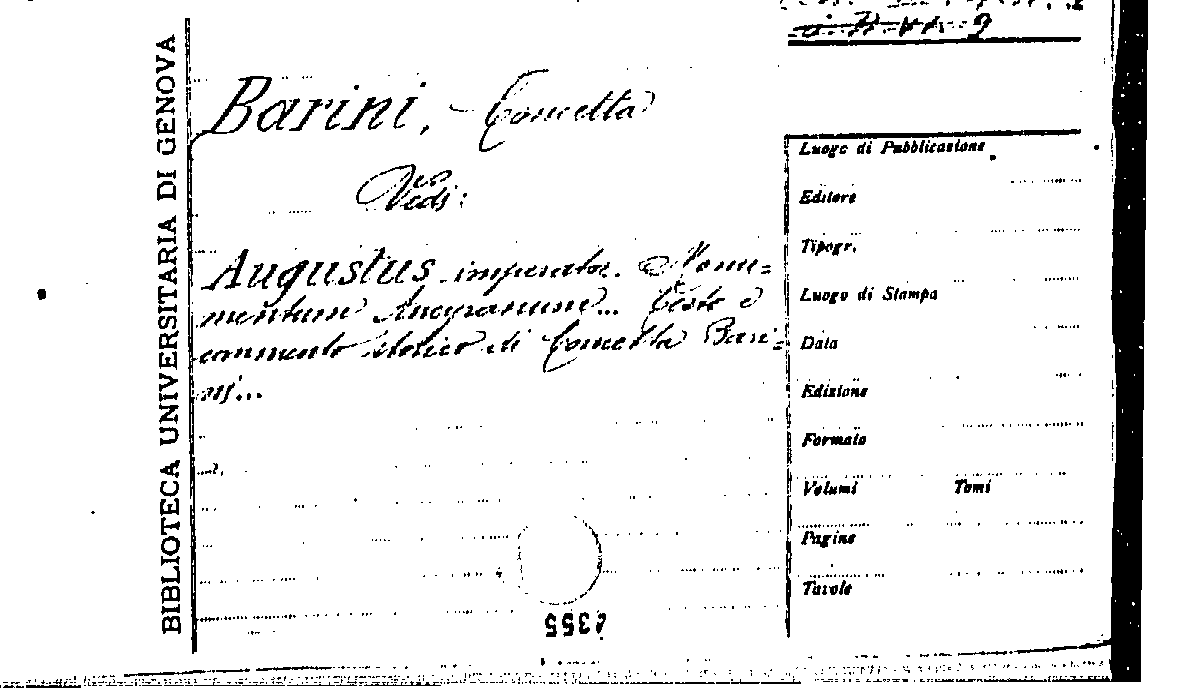 BIBLIOTECA UNIVERSITARIA DI GENOVA
Barini, Concetta
Vedi:
Augustus imperator. Monu=
mentum Ancyranum... Testo e
commento storico di Concetta Bari=
ni...
Luogo di Pubblicazione
Editore
Tipogr.
Luogo di Stampa
Data
Edizione
Formato
Volumi Tomi
Pagine
Tavole